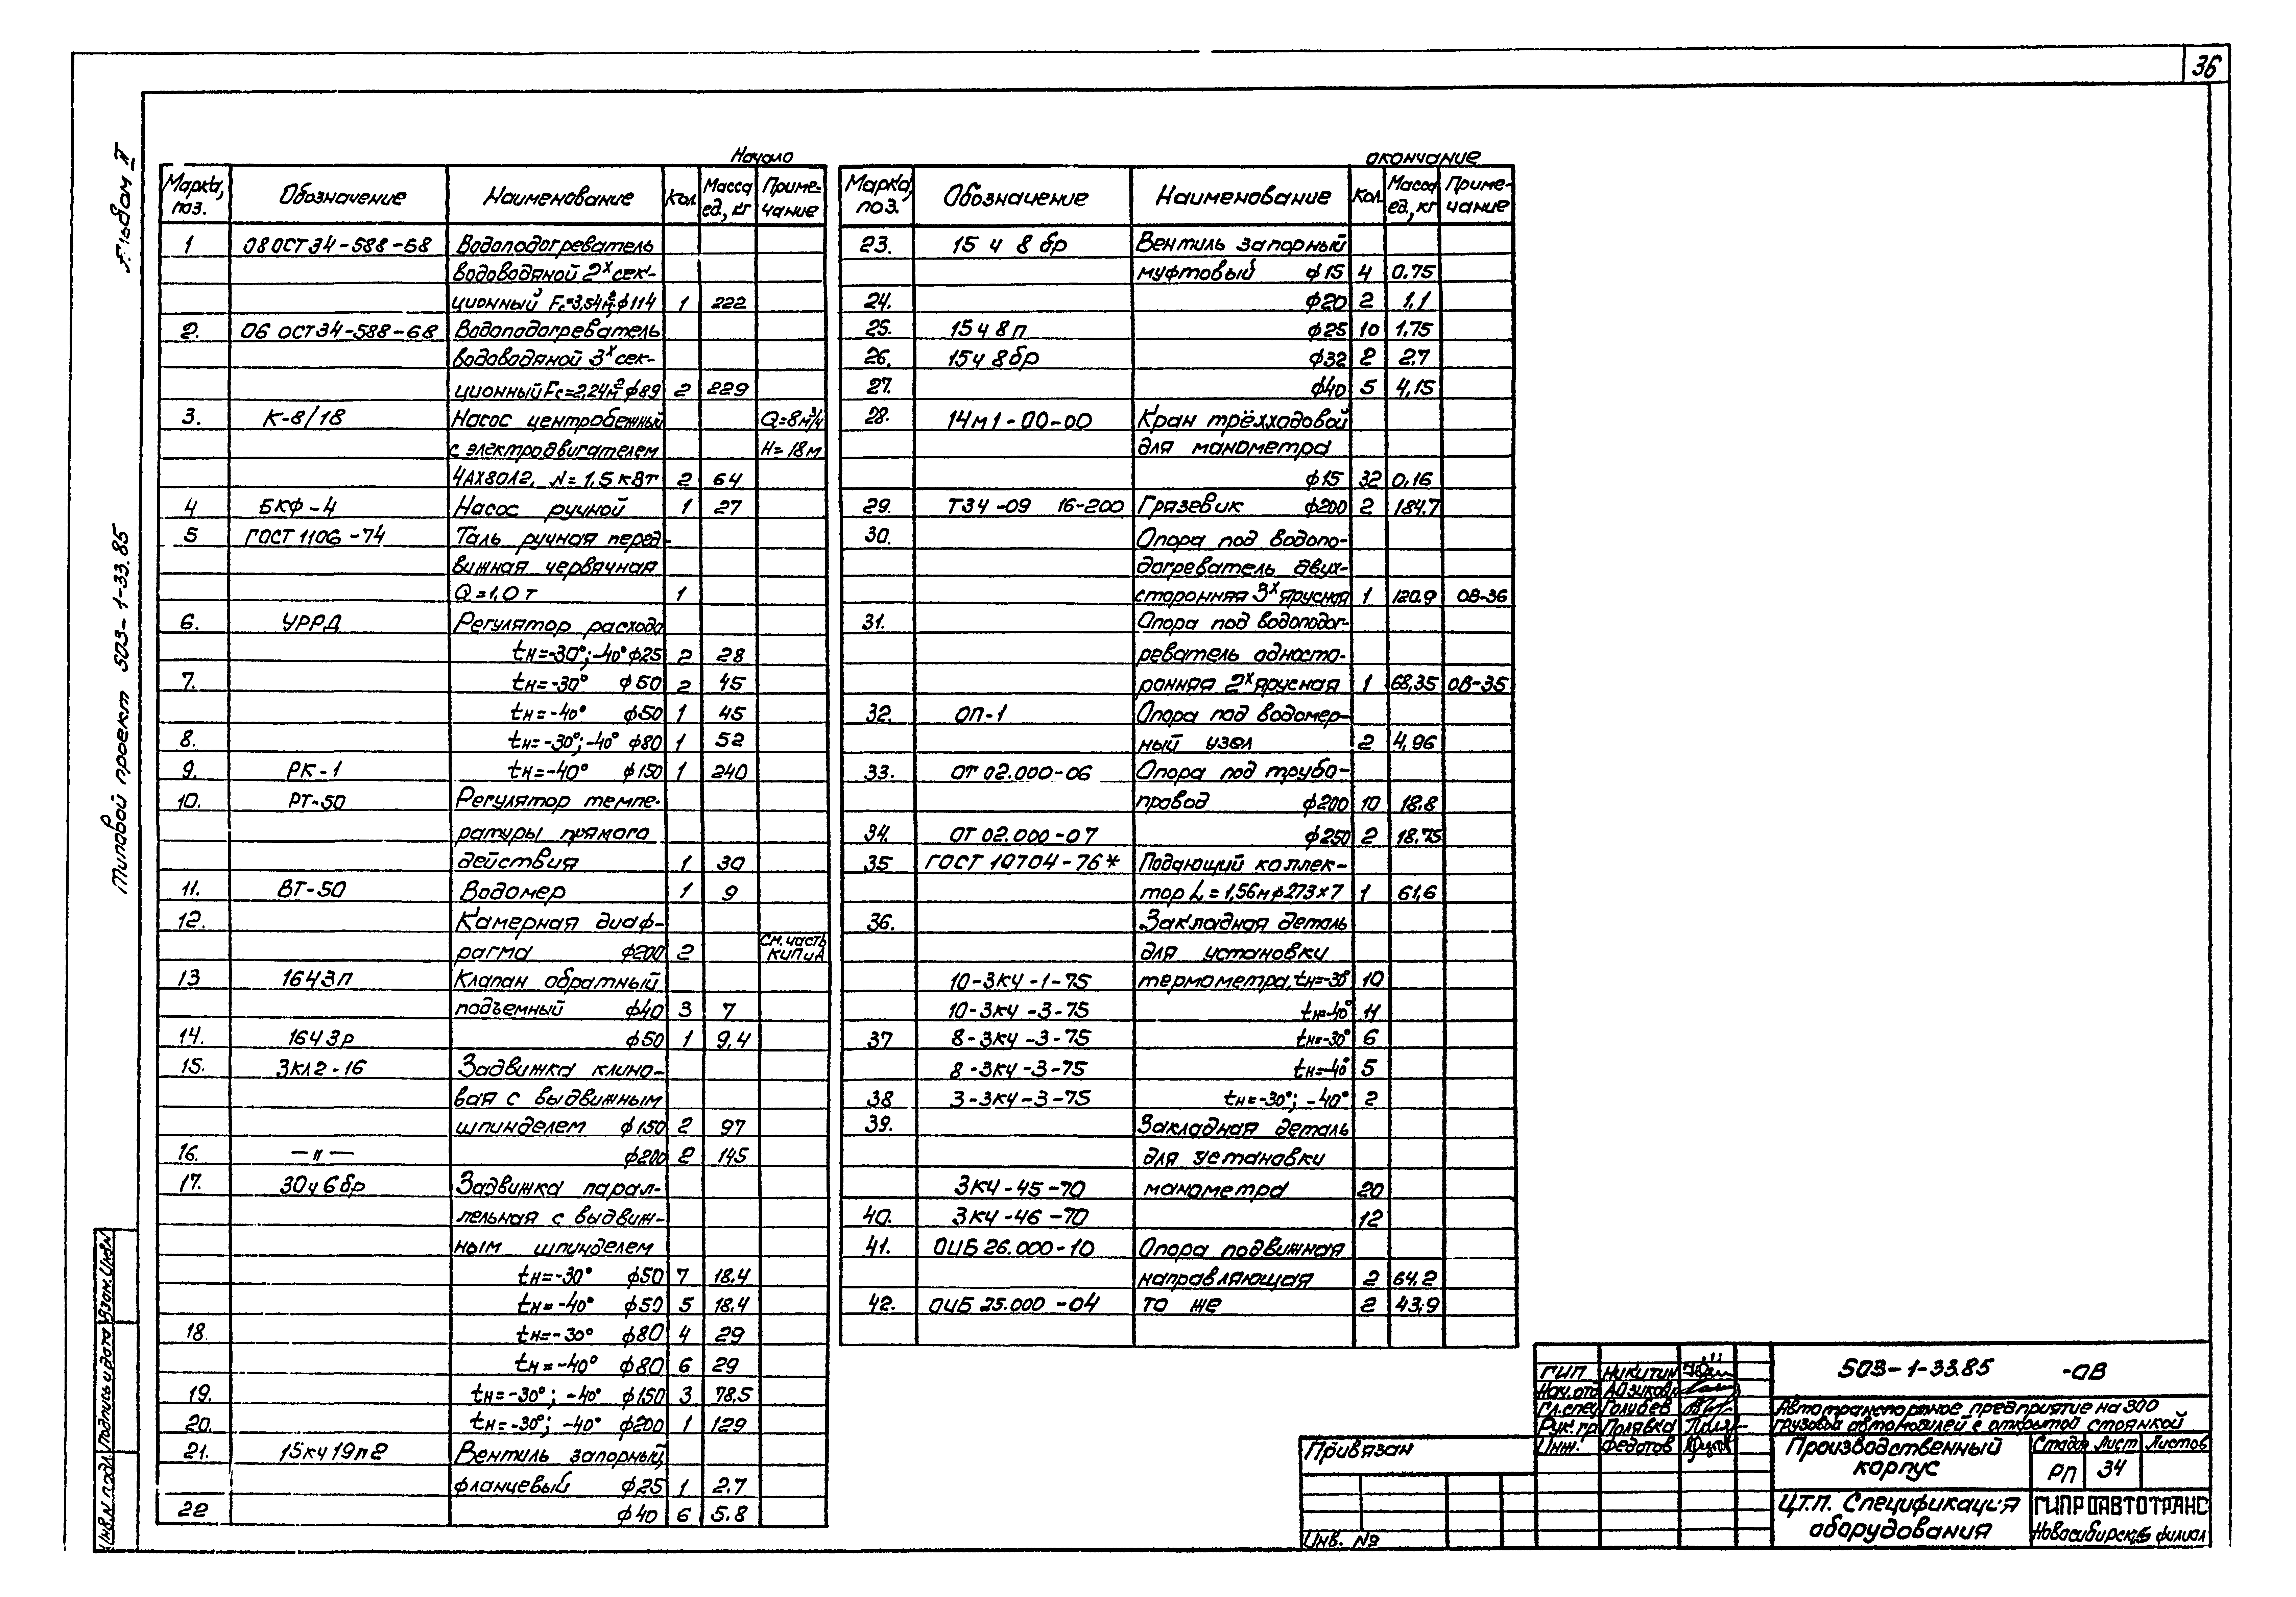 36
Альбом II
Типовой проект 503-1-33.85
Начало
Марка, поз. Обозначение Наименование Кол. Масса ед., кг Примечание
1 08 ОСТ 34-588-68 Водоподогреватель
водоводяной 2х сек-
ционный Fс=3,54м² ф114 1 222
2. 06 ОСТ 34-588-68 Водоподогреватель
водоводяной 3х сек-
ционный Fс=2,24м² ф89 2 229
3. К-8/18 Насос центробежный Q=8м³/ч
с электродвигателем Н=18м
4АХ80А2, N=1,5 кВт 2 64
4 БКФ-4 Насос ручной 1 27
5 ГОСТ 1106-74 Таль ручная перед-
вижная червячная
Q=1,0 т 1
6. УРРД Регулятор расхода
tн=-30°; -40° ф25 2 28
7. tн=-30° ф50 2 45
tн=-40° ф50 1 45
8. tн=-30°; -40° ф80 1 52
9. РК-1 tн=-40° ф150 1 240
10. РТ-50 Регулятор темпе-
ратуры прямого
действия 1 30
11. ВТ-50 Водомер 1 9
12. Камерная диаф-
рагма ф200 2 См. часть КИПиА
13 16ч3п Клапан обратный
подъемный ф40 3 7
14. 16ч3р ф50 1 9,4
15. ЗКЛ2-16 Задвижка клино-
вая с выдвижным
шпинделем ф150 2 97
16. —"— ф200 2 145
17. 30ч6бр Задвижка парал-
лельная с выдвиж-
ным шпинделем
tн=-30° ф50 7 18.4
tн=-40° ф50 5 18.4
18. tн=-30° ф80 4 29
tн=-40° ф80 6 29
19. tн=-30°; -40° ф150 3 78,5
20. tн=-30°; -40° ф200 1 129
21. 15кч19п2 Вентиль запорный
фланцевый ф25 1 2.7
22 ф40 6 5.8
окончание
Марка, поз. Обозначение Наименование Кол. Масса ед., кг Примечание
23. 15ч8бр Вентиль запорный
муфтовый ф15 4 0.75
24. ф20 2 1,1
25. 15ч8п ф25 10 1.75
26. 15ч8бр ф32 2 2.7
27. ф40 5 4,15
28. 14м1-00-00 Кран трёхходовой
для манометра
ф15 32 0,16
29. Т34-09 16-200 Грязевик ф200 2 184.7
30. Опора под водопо-
догреватель двух-
сторонняя 3х ярусная 1 120.9 ОВ-36
31. Опора под водоподог-
реватель односто-
ронняя 2х ярусная 1 68,35 ОВ-35
32. ОП-1 Опора под водомер-
ный узел 2 4,96
33. ОТ 02.000-06 Опора под трубо-
провод ф200 10 18.8
34. ОТ 02.000-07 ф250 2 18.75
35 ГОСТ 10704-76* Подающий коллек-
тор L=1,56м ф273×7 1 61,6
36. Закладная деталь
для установки
10-ЗКЧ-1-75 термометра, tн=-30° 10
10-ЗКЧ-3-75 tн=-40° 11
37 8-ЗКЧ-3-75 tн=-30° 6
8-ЗКЧ-3-75 tн=-40° 5
38 3-ЗКЧ-3-75 tн=-30°; -40° 2
39. Закладная деталь
для установки
ЗКЧ-45-70 манометра 20
40. ЗКЧ-46-70 12
41. ОЦБ 26.000-10 Опора подвижная
направляющая 2 64.2
42. ОЦБ 25.000-04 то же 2 43,9
ГИП Никитин
Нач.отд Айзикович
Гл.спец Голубев
Рук.гр. Полявка
Инж. Федотов
503-1-33.85 -ОВ
Автотранспортное предприятие на 300
грузовых автомобилей с открытой стоянкой
Производственный
корпус
Стадия Лист Листов
РП 34
Ц.Т.П. Спецификация
оборудования
ГИПРОАВТОТРАНС
Новосибирский филиал
Привязан
Инв. №
Инв.N подл. Подпись и дата Взам.Инв.N